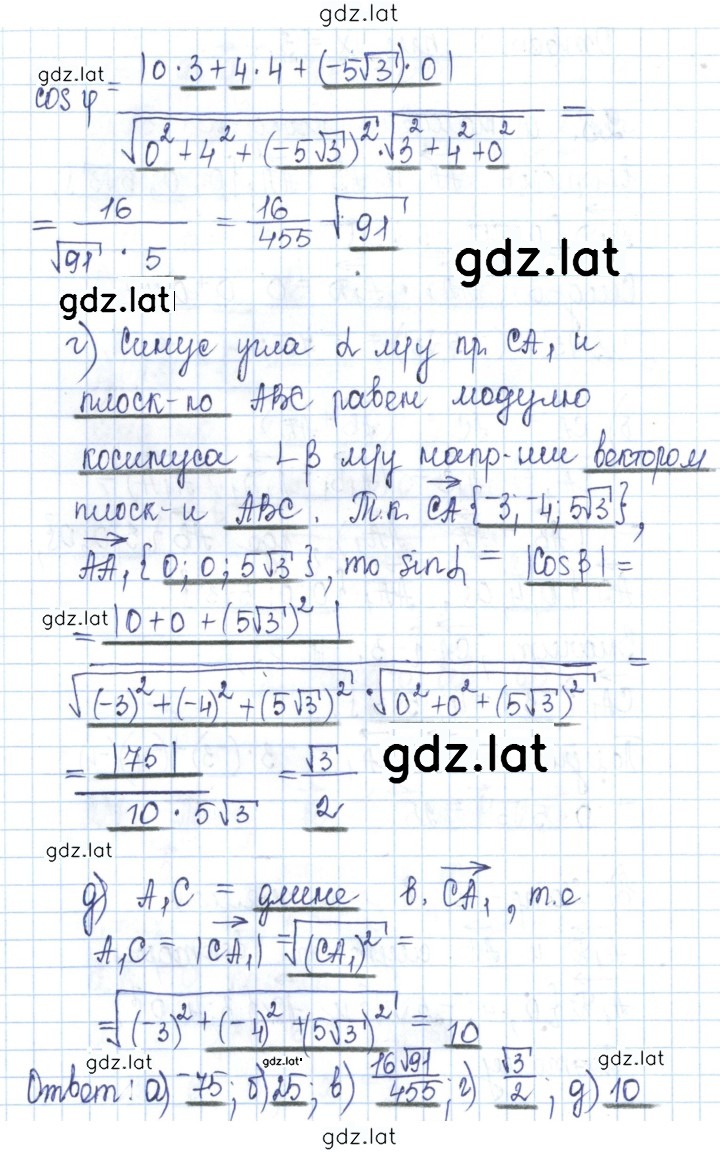 gdz.lat
gdz.lat
cos φ = |0·3+4·4+(-5√3)·0| / √(0²+4²+(-5√3)²)·√(3²+4²+0²) =
= 16 / √91 · 5 = 16/455 √91
gdz.lat
gdz.lat
г) Синус угла α м/у пр. CA₁ и
плоск-ю ABC равен модулю
косинуса ∠β м/у напр-им вектором
плоск-и ABC. Т.к. CA{-3;-4;5√3},
AA₁{0;0;5√3}, то sinα = |cosβ| =
gdz.lat
= |0+0+(5√3)²| / √((-3)²+(-4)²+(5√3)²)·√(0²+0²+(5√3)²) =
= |75| / 10·5√3 = √3/2
gdz.lat
gdz.lat
д) A₁C = длине в. CA₁, т.е
A₁C = |CA₁| = √(CA₁)² =
= √((-3)²+(-4)²+(5√3)²) = 10
gdz.lat gdz.lat gdz.lat
Ответ: а) -75; б) 25; в) 16√91/455; г) √3/2; д) 10
gdz.lat